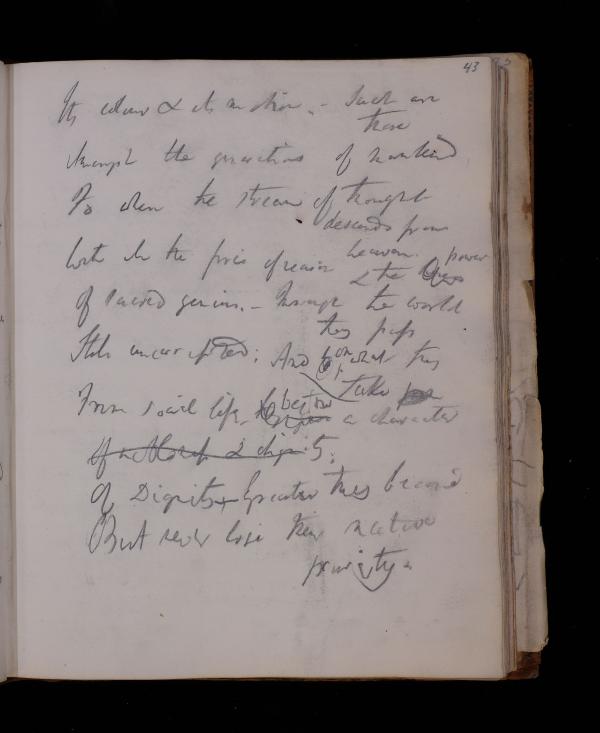 43
Its colour & its motion. - Such are
those
Amongst the generations of mankind
To whom the stream of thought
descends from
heaven.
With all the force of reason & the power
Of sacred genius. - Through the world
they pass
Still uncorrupted; And on what they
take
From social life, bestow a character
Of & dignity;
Of Dignity. Greater they become
But never lose their native
purity.